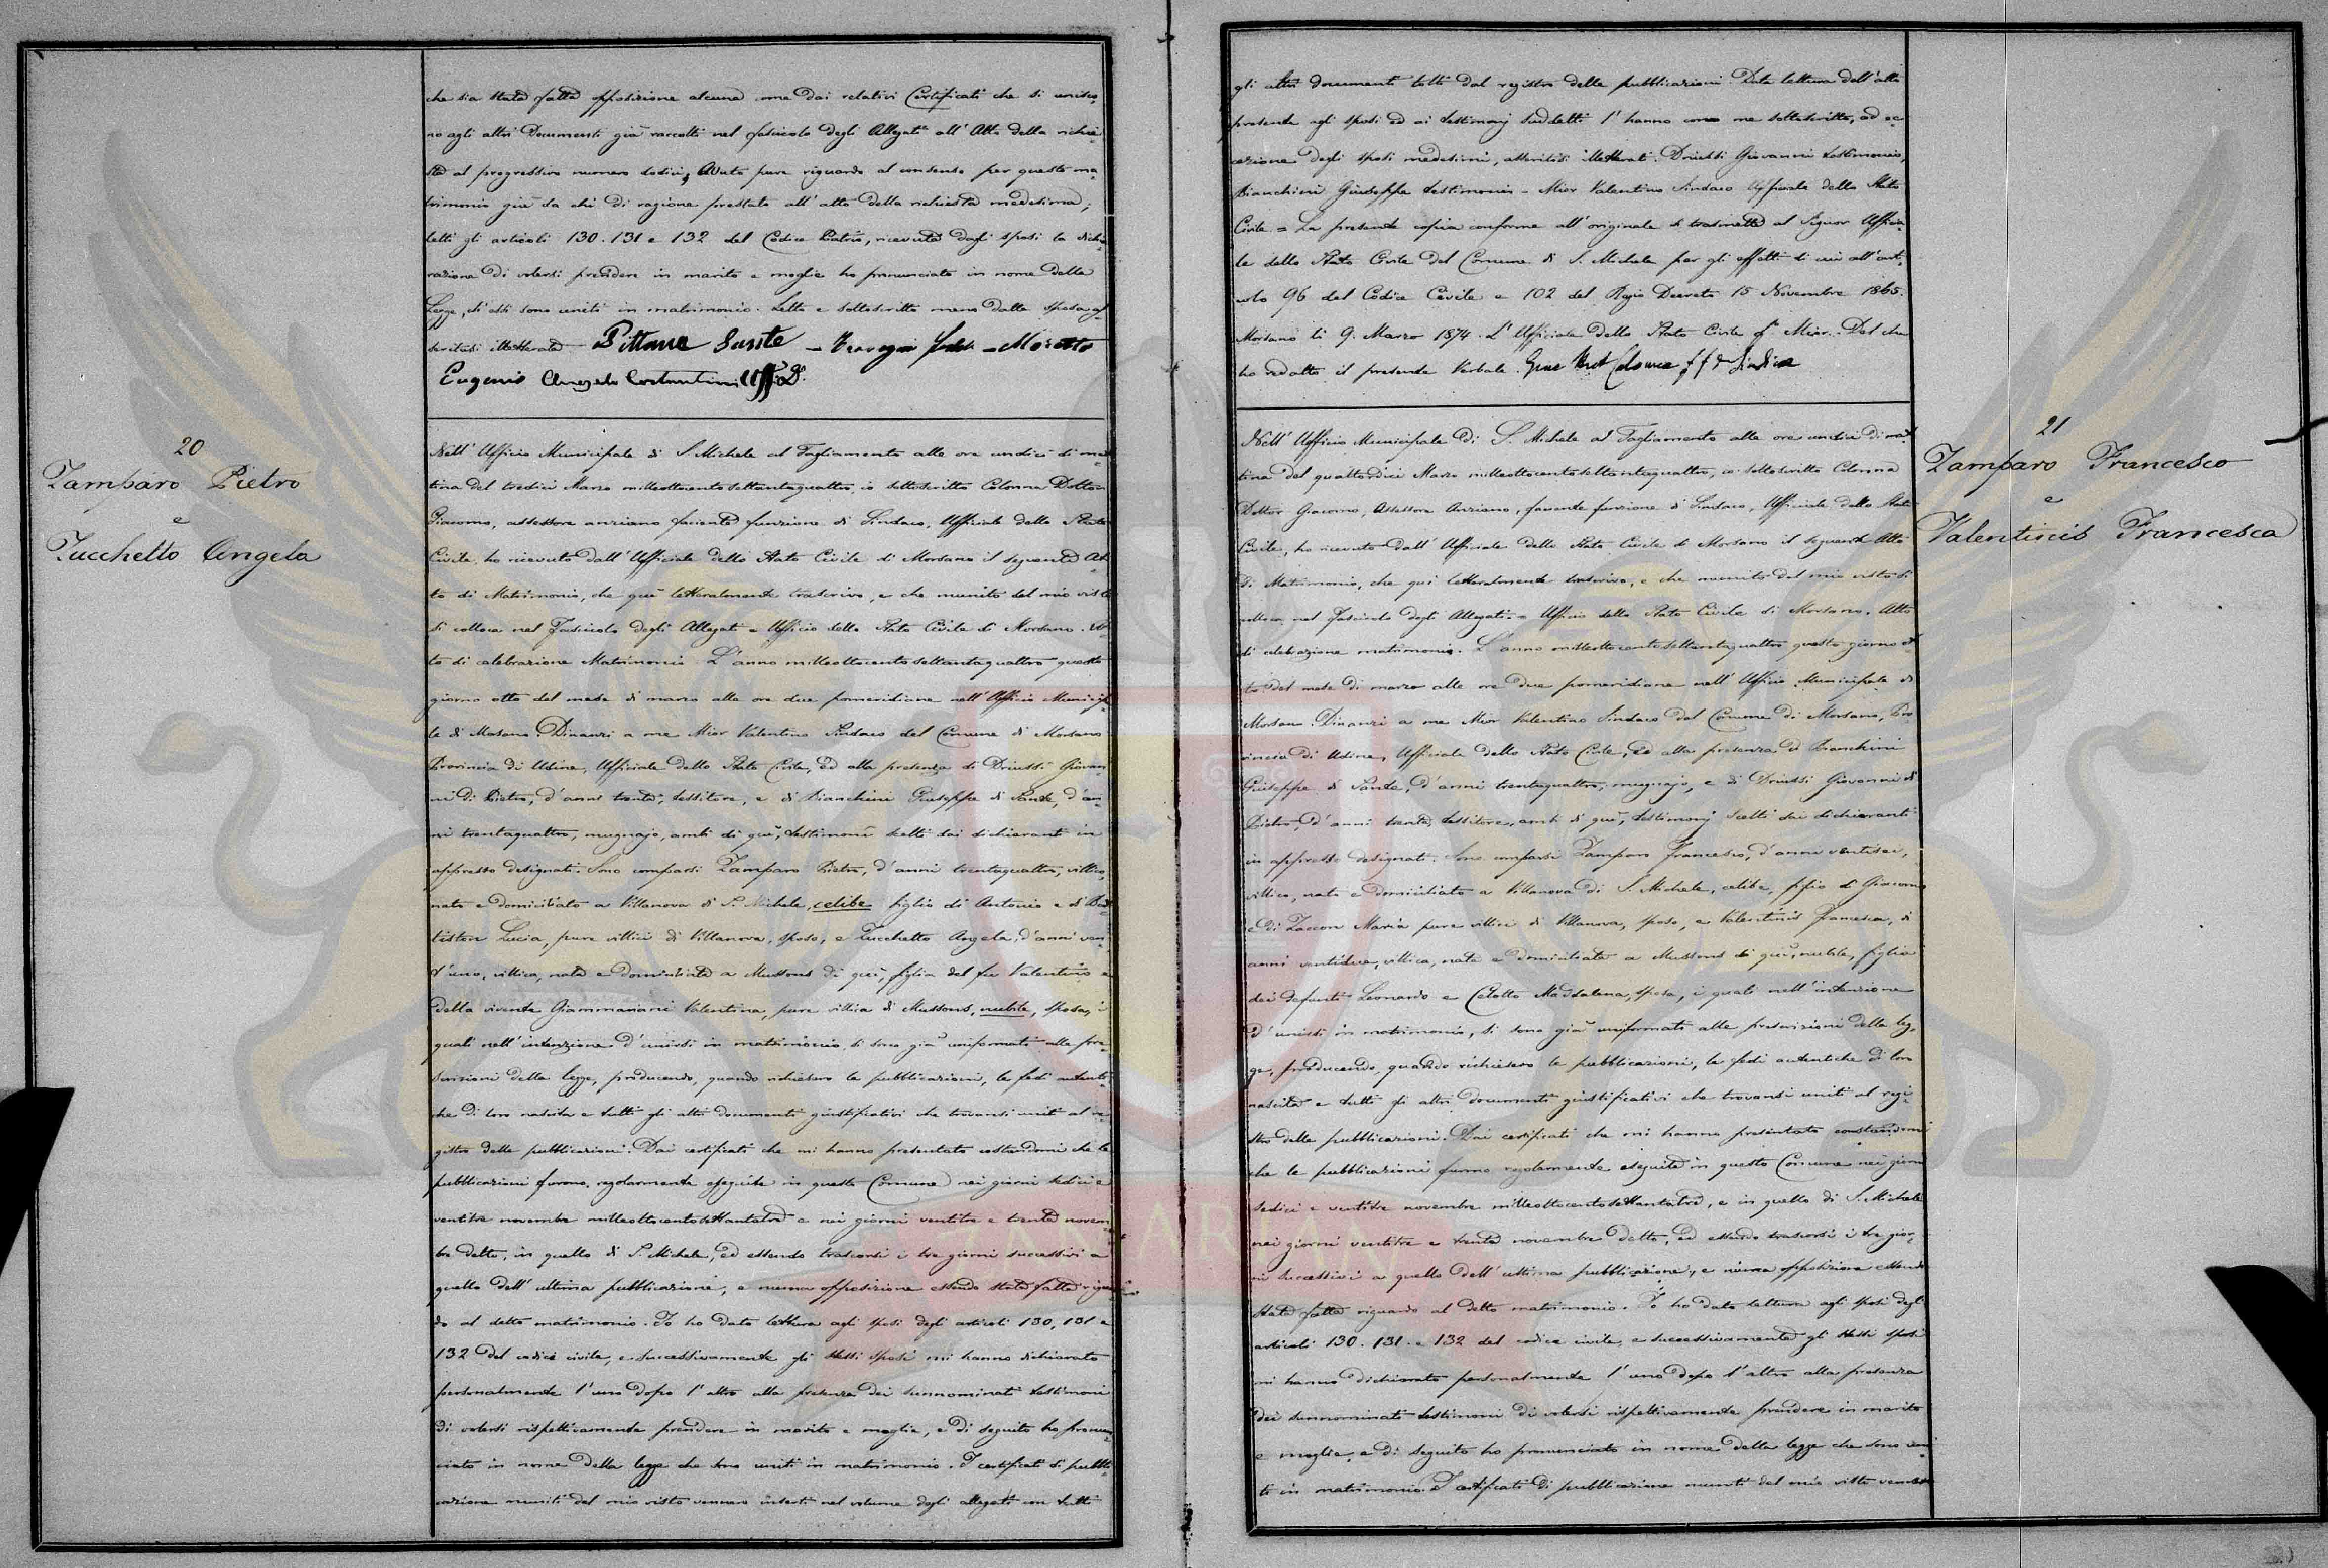 che sia stata fatta opposizione alcuna come dai relativi Certificati che si unisco-
no agli altri Documenti già raccolti nel fascicolo degli Allegati all'Atto della richie-
sta al progressivo numero sedici; Avuto pure riguardo al consenso per questo ma-
trimonio già da chi di ragione prestato all'atto della richiesta medesima;
letti gli articoli 130. 131 e 132 del Codice Patrio, ricevuta dagli sposi la dichia-
razione di volersi prendere in marito e moglie ho pronunciato in nome della
Legge, ch'essi sono uniti in matrimonio. Letto e sottoscritto meno dalla sposa as-
seritasi illetterata Pittana Sante — — Moretto
Eugenio Angelo Costantini Uff. D.
20
Zamparo Pietro
e
Zucchetto Angela
Nell'Ufficio Municipale di S. Michele al Tagliamento alle ore undici di mat-
tina del tredici Marzo milleottocentosettantaquattro, io sottoscritto Colonna Dottor
Giacomo, assessore anziano facente funzione di Sindaco, Ufficiale dello Stato
Civile, ho ricevuto dall'Ufficiale dello Stato Civile di Morsano il seguente At-
to di Matrimonio, che quì letteralmente trascrivo, e che munito del mio visto
si colloca nel Fascicolo degli Allegati = Ufficio dello Stato Civile di Morsano. At-
to di celebrazione Matrimonio. L'anno milleottocentosettantaquattro questo
giorno otto del mese di marzo alle ore due pomeridiane nell'Ufficio Municipa-
le di Morsano. Dinanzi a me Mior Valentino Sindaco del Comune di Morsano
Provincia di Udine, Ufficiale dello Stato Civile, ed alla presenza di Driussi Giovan-
ni di Pietro, d'anni trenta, tessitore, e di Bianchini Giuseppe di Sante, d'an-
ni trentaquattro, mugnajo, ambi di quì, testimoni scelti dai dichiaranti in
appresso designati. Sono comparsi Zamparo Pietro, d'anni trentaquattro, villico,
nato e domiciliato a Villanova di S. Michele, celibe figlio di Antonio e di Bat-
tiston Lucia, pure villici di Villanova, sposo, e Zucchetto Angela, d'anni ven-
t'uno, villica, nata e domiciliata a Mussons di quì, figlia del fu Valentino e
della vivente Giammariani Valentina, pure villica di Mussons, nubile, sposa, i
quali nell'intenzione d'unirsi in matrimonio, si sono già uniformati alle pre-
scrizioni della legge, producendo, quando richiesero le pubblicazioni, le fedi autenti-
che di loro nascita e tutti gli altri documenti giustificativi che trovansi uniti al re-
gistro delle pubblicazioni. Dai certificati che mi hanno presentato constandomi che le
pubblicazioni furono regolarmente eseguite in questo Comune nei giorni sedici e
ventitre novembre milleottocentosettantatre e nei giorni ventitre e trenta novem-
bre detto, in quello di S. Michele, ed essendo trascorsi i tre giorni successivi a
quello dell'ultima pubblicazione, e niuna opposizione essendo stata fatta riguar-
do al detto matrimonio. Io ho dato lettura agli sposi degli articoli 130, 131 e
132 del codice civile, e successivamente gli stessi sposi mi hanno dichiarato
personalmente l'uno dopo l'altro alla presenza dei sunnominati testimoni
di volersi rispettivamente prendere in marito e moglie, e di seguito ho pronun-
ciato in nome della legge che sono uniti in matrimonio. I certificati di pubbli-
cazione muniti del mio visto vennero inserti nel volume degli allegati con tutti
gli altri documenti tolti dal registro delle pubblicazioni. Data lettura dell'atto
presente agli sposi ed ai testimonj suddetti l'hanno con me sottoscritto, ad ec-
cezione degli sposi medesimi, asseritisi illetterati. Driussi Giovanni testimonio,
Bianchini Giuseppe testimonio - Mior Valentino Sindaco Ufficiale dello Stato
Civile = La presente copia conforme all'originale si trasmette al Signor Ufficia-
le dello Stato Civile del Comune di S. Michele per gli effetti di cui all'arti-
colo 96 del Codice Civile e 102 del Regio Decreto 15 Novembre 1865.
Morsano li 9. Marzo 1874. L'Ufficiale dello Stato Civile f.to Mior. Del che
ho redatto il presente Verbale. Colonna ff di Sindaco
21
Zamparo Francesco
e
Valentinis Francesca
Nell'Ufficio Municipale di S. Michele al Tagliamento alle ore undici di mat-
tina del quattordici Marzo milleottocentosettantaquattro, io sottoscritto Colonna
Dottor Giacomo, Assessore Anziano, facente funzione di Sindaco, Ufficiale dello Stato
Civile, ho ricevuto dall'Ufficiale dello Stato Civile di Morsano il seguente Atto
di Matrimonio, che quì letteralmente trascrivo, e che munito del mio visto si
colloca nel Fascicolo degli Allegati = Ufficio dello Stato Civile di Morsano. Atto
di celebrazione matrimonio. L'anno milleottocentosettantaquattro questo giorno ot-
to del mese di marzo alle ore due pomeridiane nell'Ufficio Municipale di
Morsano. Dinanzi a me Mior Valentino Sindaco del Comune di Morsano, Pro-
vincia di Udine, Ufficiale dello Stato Civile, ed alla presenza di Bianchini
Giuseppe di Sante, d'anni trentaquattro, mugnajo, e di Driussi Giovanni di
Pietro, d'anni trenta, tessitore, ambi di quì, testimonj scelti dai dichiaranti
in appresso designati. Sono comparsi Zamparo Francesco, d'anni ventisei,
villico, nato e domiciliato a Villanova di S. Michele, celibe, figlio di Giacomo
e di Zaccon Maria pure villici di Villanova, sposo, e Valentinis Francesca, di
anni ventidue, villica, nata e domiciliata a Mussons di quì, nubile, figlia
dei defunti Leonardo e Celotto Maddalena, sposa, i quali nell'intenzione
d'unirsi in matrimonio, si sono già uniformati alle prescrizioni della leg-
ge, producendo, quando richiesero le pubblicazioni, le fedi autentiche di loro
nascita e tutti gli altri documenti giustificativi che trovansi uniti al regi-
stro delle pubblicazioni. Dai certificati che mi hanno presentato constandomi
che le pubblicazioni furono regolarmente eseguite in questo Comune nei giorni
sedici e ventitre novembre milleottocentosettantatre, e in quello di S. Michele
nei giorni ventitre e trenta novembre detto, ed essendo trascorsi i tre gior-
ni successivi a quello dell'ultima pubblicazione, e niuna opposizione essendo
stata fatta riguardo al detto matrimonio. Io ho dato lettura agli sposi degli
articoli 130. 131. e 132 del codice civile, e successivamente gli stessi sposi
mi hanno dichiarato personalmente l'uno dopo l'altro alla presenza
dei sunnominati testimoni di volersi rispettivamente prendere in marito
e moglie, e di seguito ho pronunciato in nome della legge che sono uni-
ti in matrimonio. I certificati di pubblicazione muniti del mio visto vennero